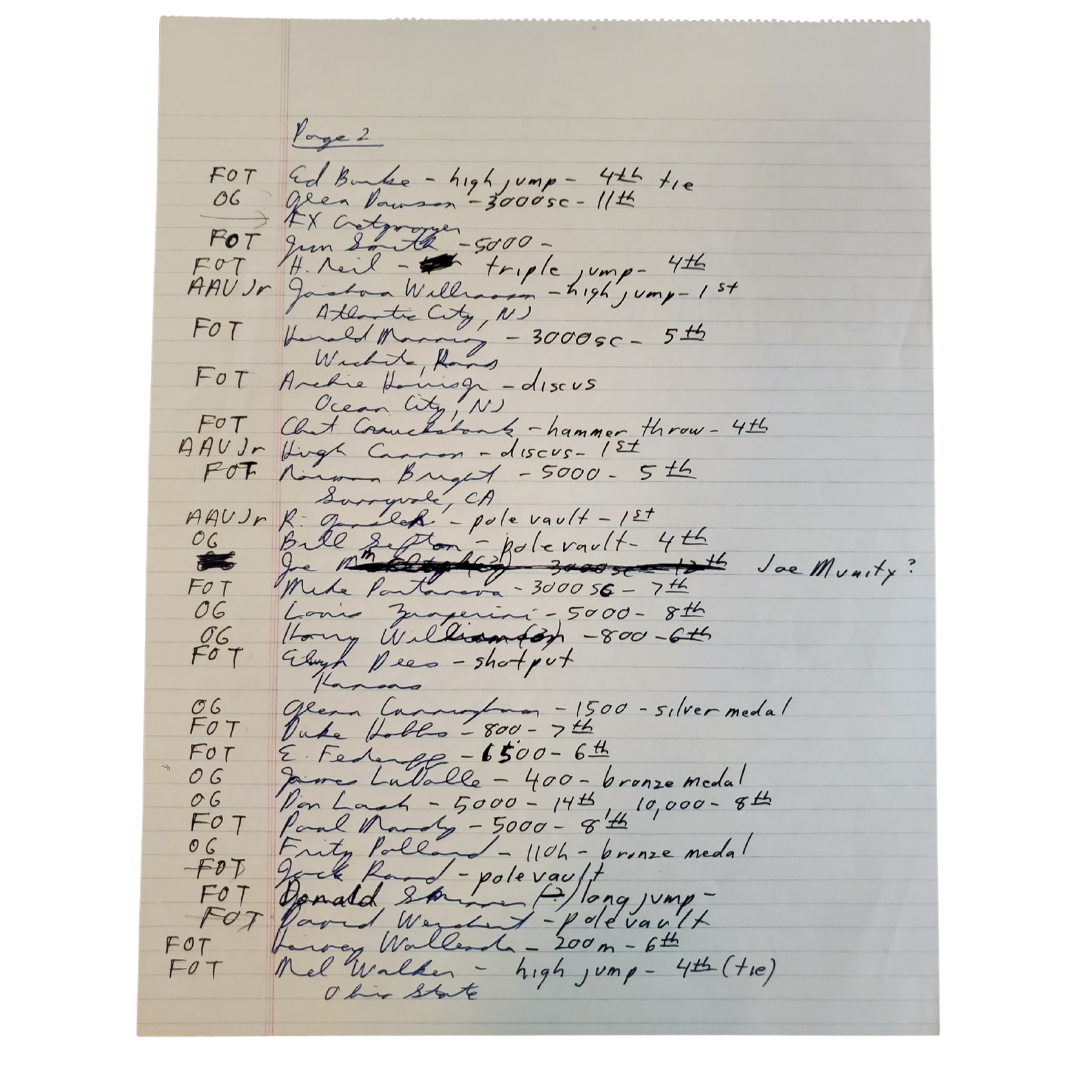 Page 2
FOT Ed Burke - high jump - 4th tie
OG Glen Dawson - 3000sc - 11th
EX
FOT Jim Smith - 5000 -
FOT H. Neil - triple jump - 4th
AAU Jr Joshua Williamson - high jump - 1st
Atlantic City, NJ
FOT Harold Manning - 3000sc - 5th
Wichita, Kans
FOT Archie Harris Jr - discus
Ocean City, NJ
FOT Chet Cruickshank - hammer throw - 4th
AAU Jr Hugh Cannon - discus - 1st
FOT Norman Bright - 5000 - 5th
Sunnyvale, CA
AAU Jr R. - pole vault - 1st
OG Bill Sefton - pole vault - 4th
Joe 3000sc - 12th Joe Munity?
FOT Mike Portanova - 3000 sc - 7th
OG Louis Zamperini - 5000 - 8th
OG Harry Williamson (?) - 800 - 6th
FOT Elwyn Dees - shot put
Kansas
OG Glenn Cunningham - 1500 - silver medal
FOT Duke Hobbs - 800 - 7th
FOT E. - 1500 - 6th
OG James LuValle - 400 - bronze medal
OG Don Lash - 5000 - 14th, 10,000 - 8th
FOT Paul Mundy - 5000 - 8th
OG Fritz Pollard - 110h - bronze medal
FOT Jack Rand - pole vault
FOT Donald (?) long jump -
FOT David - pole vault
FOT Harvey Wallender - 200m - 6th
FOT Mel Walker - high jump - 4th (tie)
Ohio State